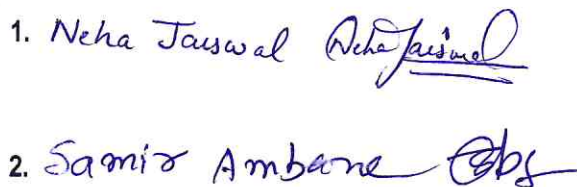 1. Neha Jaiswal Neha Jaiswal
2. Samir Ambane